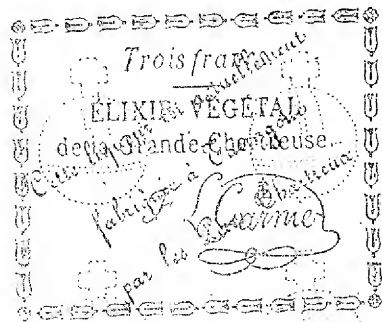 Trois francs
ÉLIXIR VÉGÉTAL
de la Grande-Chartreuse
Cette liqueur est actuellement
fabriquée à Tarragone
par les Pères Chartreux
L. Garnier